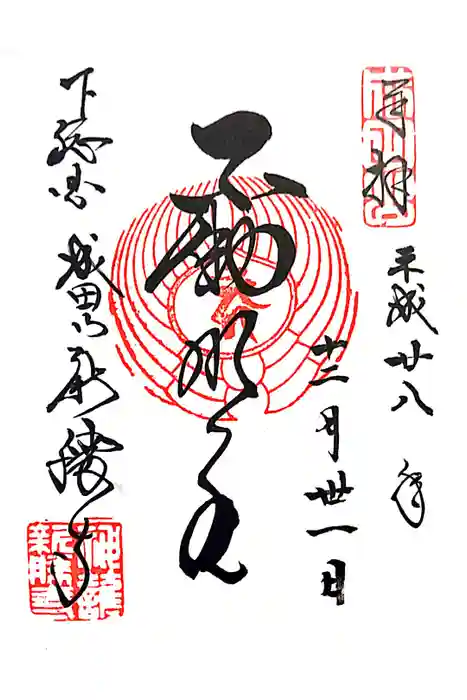 奉拝
平成廿八年
十二月丗一日
不動明王
下総国 成田山新勝寺